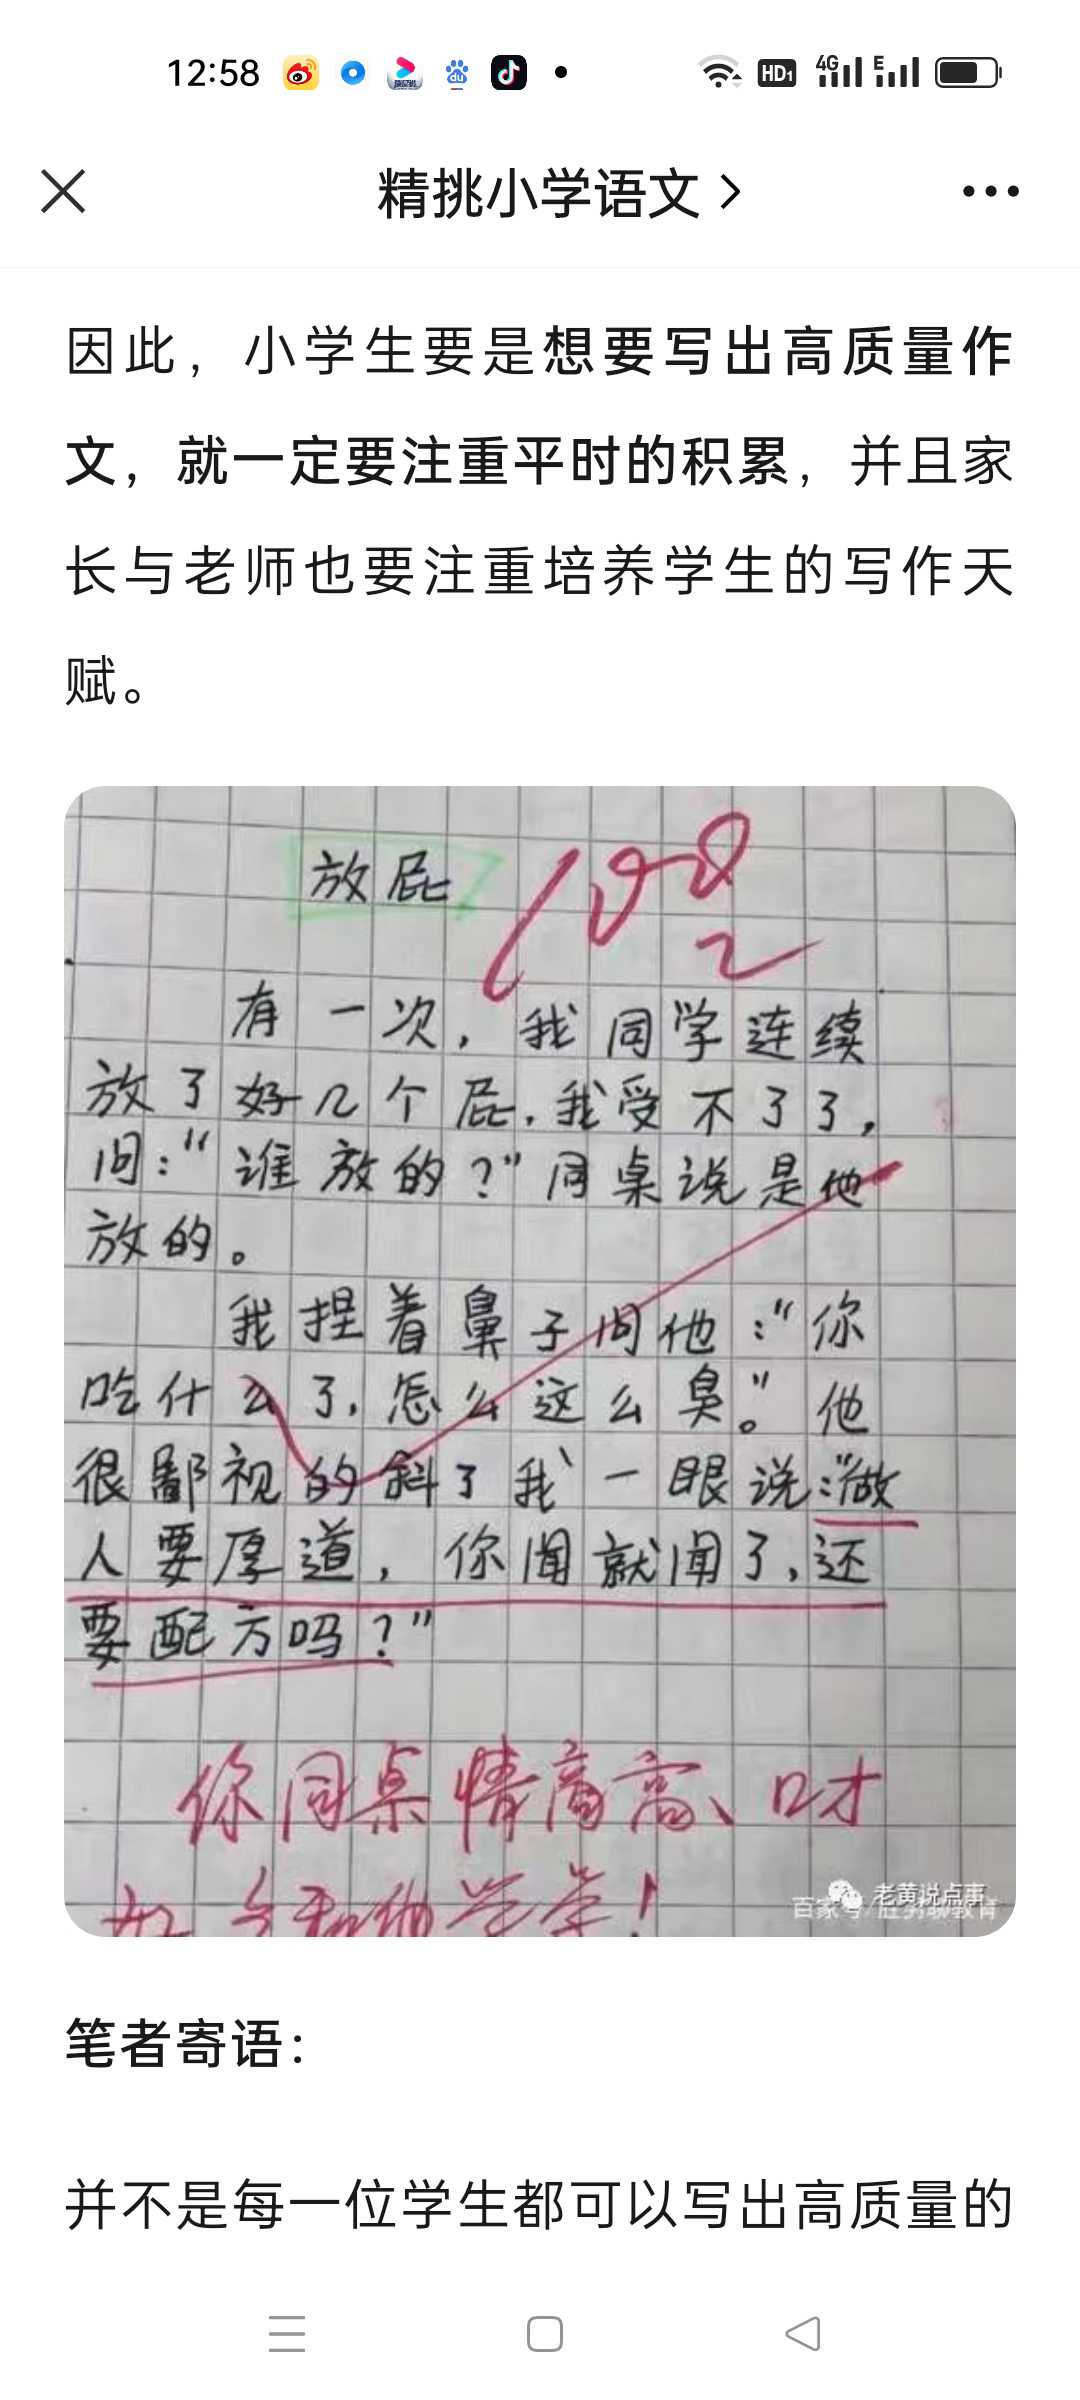 12:58
HD1 4G E
精挑小学语文
因此，小学生要是想要写出高质量作
文，就一定要注重平时的积累，并且家
长与老师也要注重培养学生的写作天
赋。
放屁
100
有一次，我同学连续
放了好几个屁，我受不了了，
问：“谁放的？”同桌说是他
放的。
我捏着鼻子问他：“你
吃什么了，怎么这么臭。”他
很鄙视的斜了我一眼说：“做
人要厚道，你闻就闻了，还
要配方吗？”
你同桌情商高、口才
好 多和他学学！
老黄说点事
百家号/胜男聊教育
笔者寄语：
并不是每一位学生都可以写出高质量的